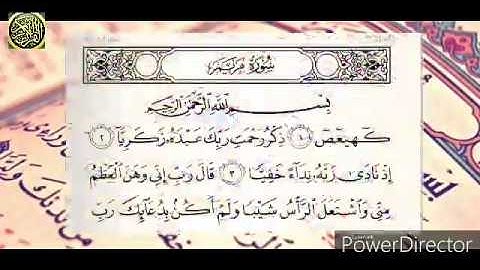 سُورَةُ مَرْيَم
بِسْمِ ٱللَّهِ ٱلرَّحْمَٰنِ ٱلرَّحِيمِ
كٓهيعٓصٓ ١ ذِكْرُ رَحْمَتِ رَبِّكَ عَبْدَهُۥ زَكَرِيَّآ ٢
إِذْ نَادَىٰ رَبَّهُۥ نِدَآءً خَفِيًّا ٣ قَالَ رَبِّ إِنِّى وَهَنَ ٱلْعَظْمُ
مِنِّى وَٱشْتَعَلَ ٱلرَّأْسُ شَيْبًا وَلَمْ أَكُنۢ بِدُعَآئِكَ رَبِّ
PowerDirector